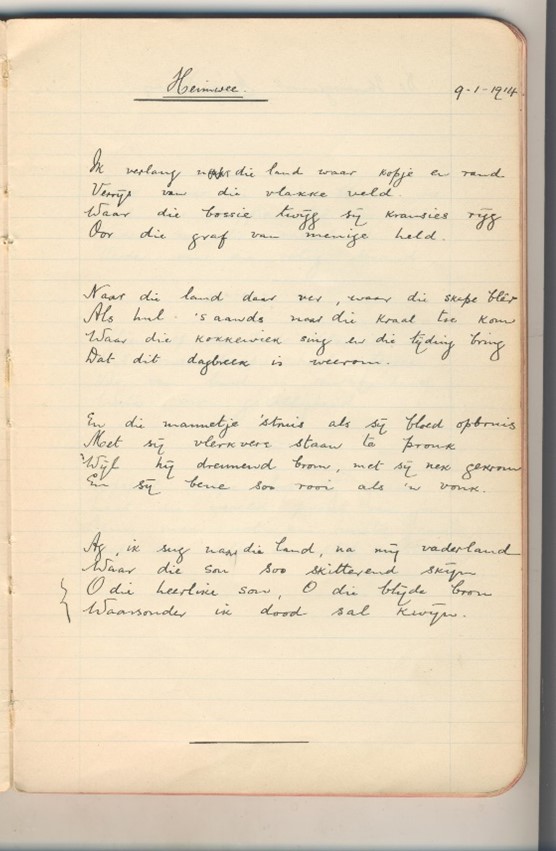 Heimwee.
9-1-1914
Ik verlang naar die land waar kopje en rand
Verrijs van die vlakke veld.
Waar die bossie twijg sij kransies rijg
Oor die graf van menige held.
Naar die land daar ver, waar die skape blêr
Als hul 's aands naar die kraal toe kom
Waar die kokkewiek sing en die tijding bring
Dat dit dagbreek is weerom.
En die mannetje 'struis als sij bloed opbruis
Met sij vlerkvere staan te pronk
Wijl hij dreunend brom, met sij nek gekrom
En sij bene soo rooi als 'n vonk.
Ag, ik sug naar die land, na mij vaderland
Waar die son soo skitterend skijn
O die heerlike son, O die blijde bron
Waarsonder ik dood sal kwijn.